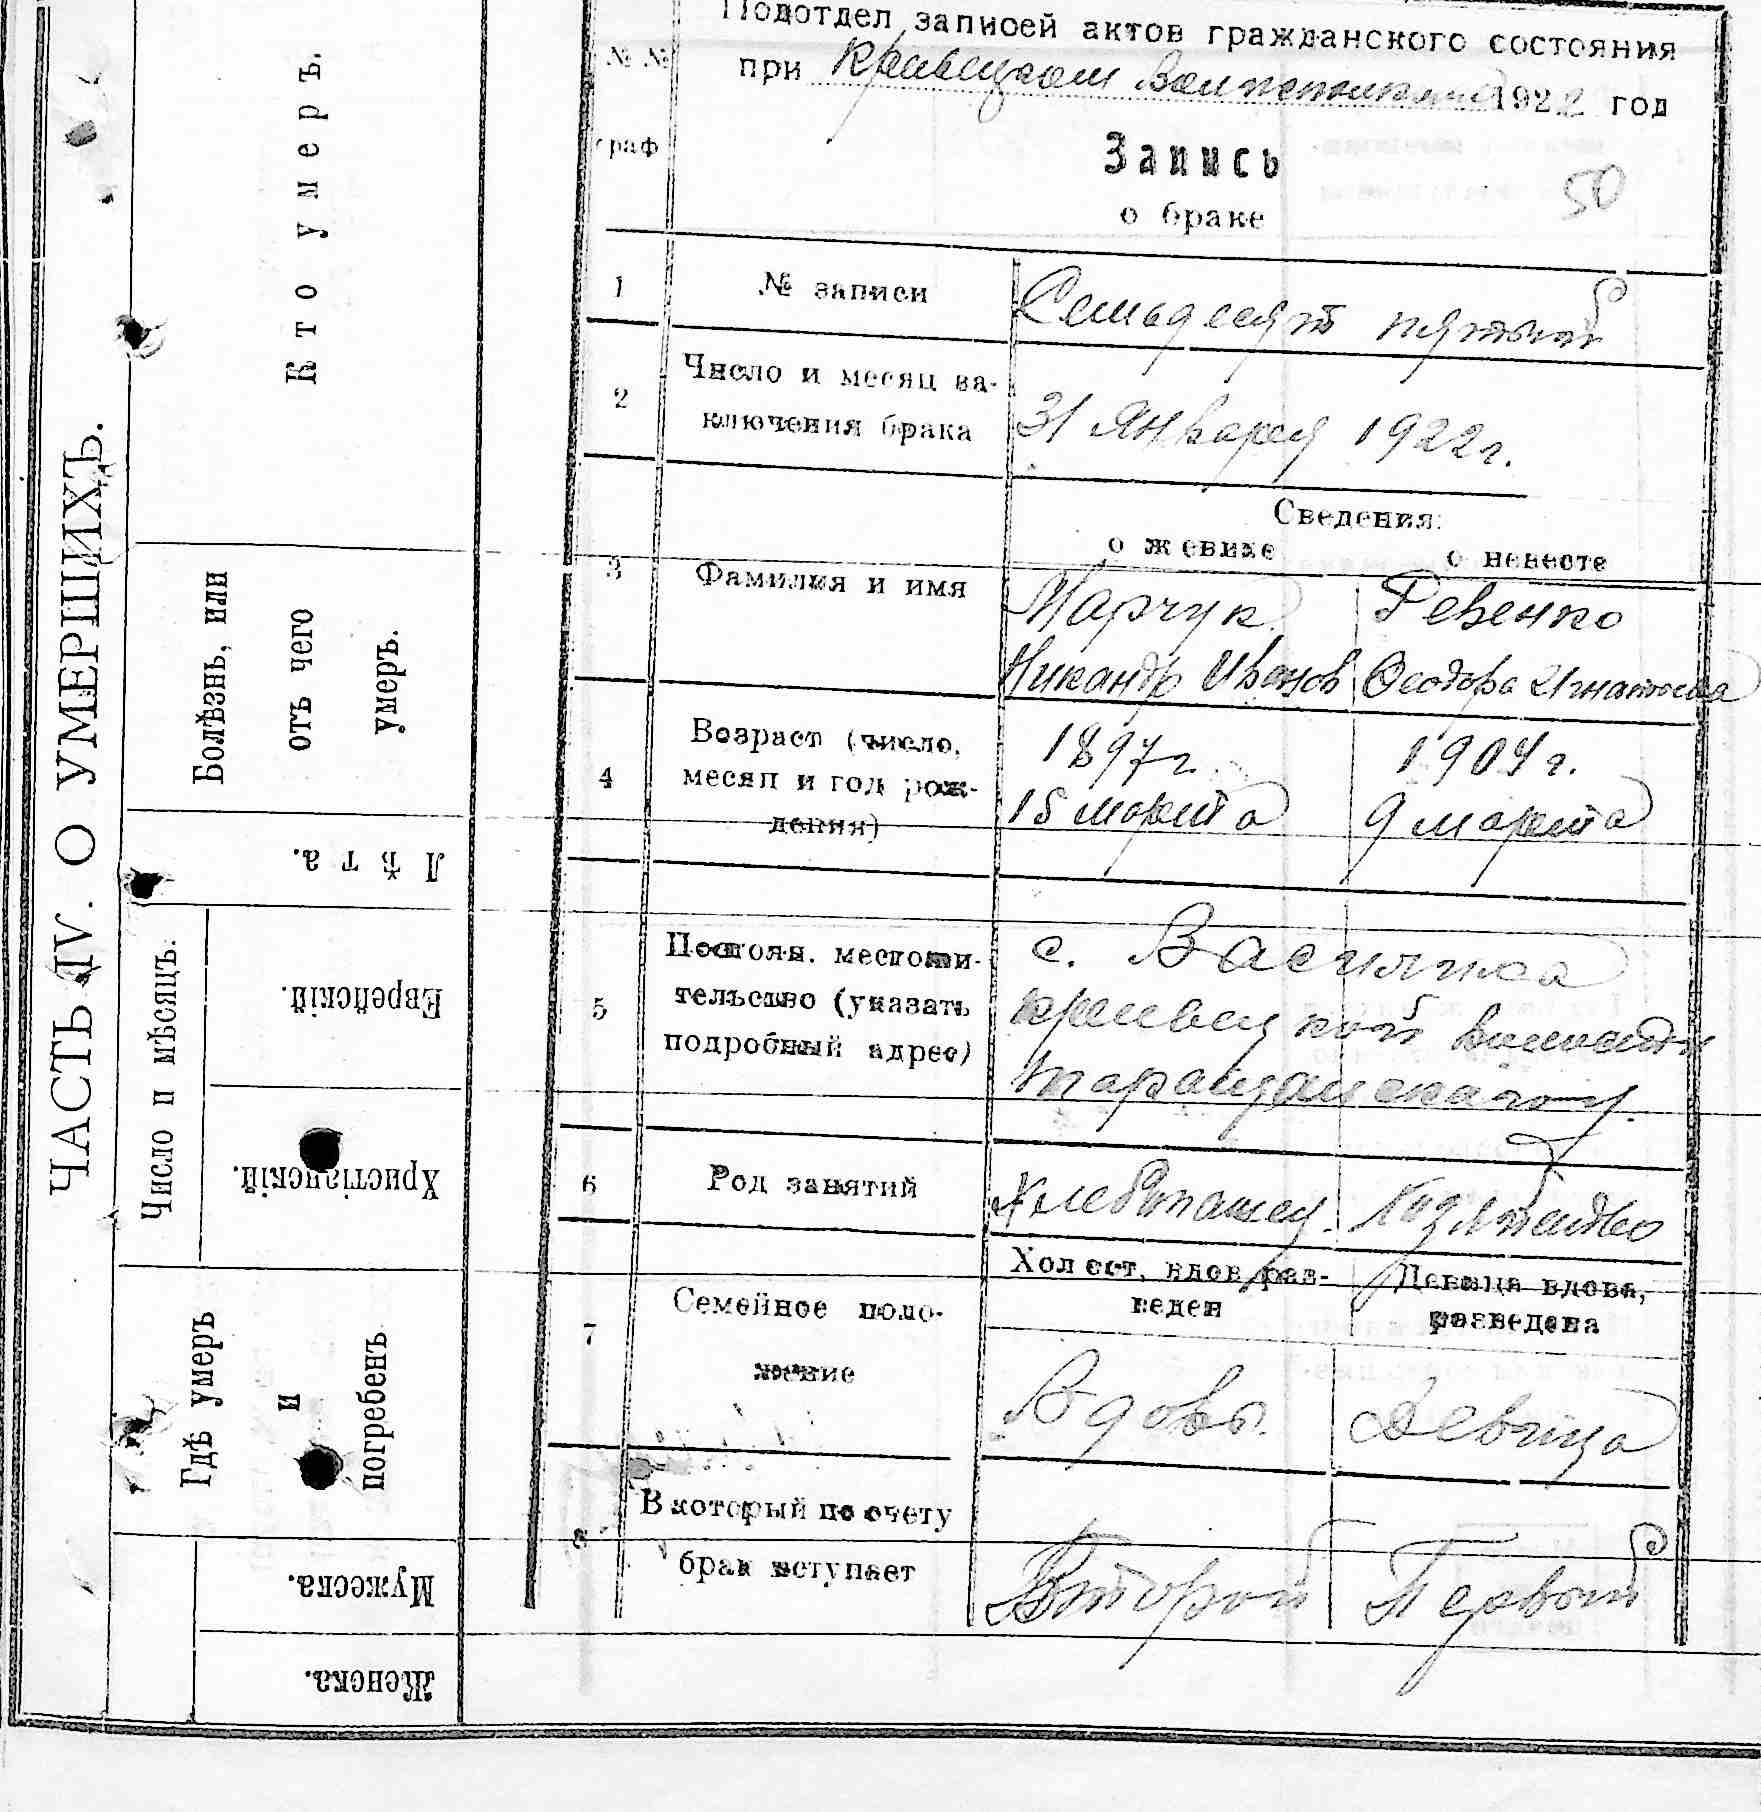 ЧАСТЬ IV. О УМЕРШИХЪ.
Кто умеръ.
Болѣзнь, или
отъ чего
умеръ.
Лѣта.
Число и мѣсяцъ.
Еврейскій.
Христіанскій.
Гдѣ умеръ
и
погребенъ
Мужеска.
Женска.
Подотдел записей актов гражданского состояния
№ №
граф
при Кривецком Волисполкоме 1922 год
Запись
о браке
50
1
№ записи
Семьдесят пятый
2
Число и месяц за-
ключения брака
31 Января 1922 г.
Сведения:
о женихе
о невесте
3
Фамилия и имя
Марчук
Никандр Иванов
Ревенко
Феодора Игнатьева
4
Возраст (число,
месяц и год рож-
дения)
1897 г.
15 марта
1904 г.
9 марта
5
Постоян. местожи-
тельство (указать
подробный адрес)
с. Василиха
Кривецкой волости
Таращанского у.
6
Род занятий
Хлебопашец
7
Семейное поло-
жение
Холост, вдов, раз-
веден
Девица вдова,
разведена
Вдовъ
Девица
8
В который по счету
брак вступает
Второй
Первый